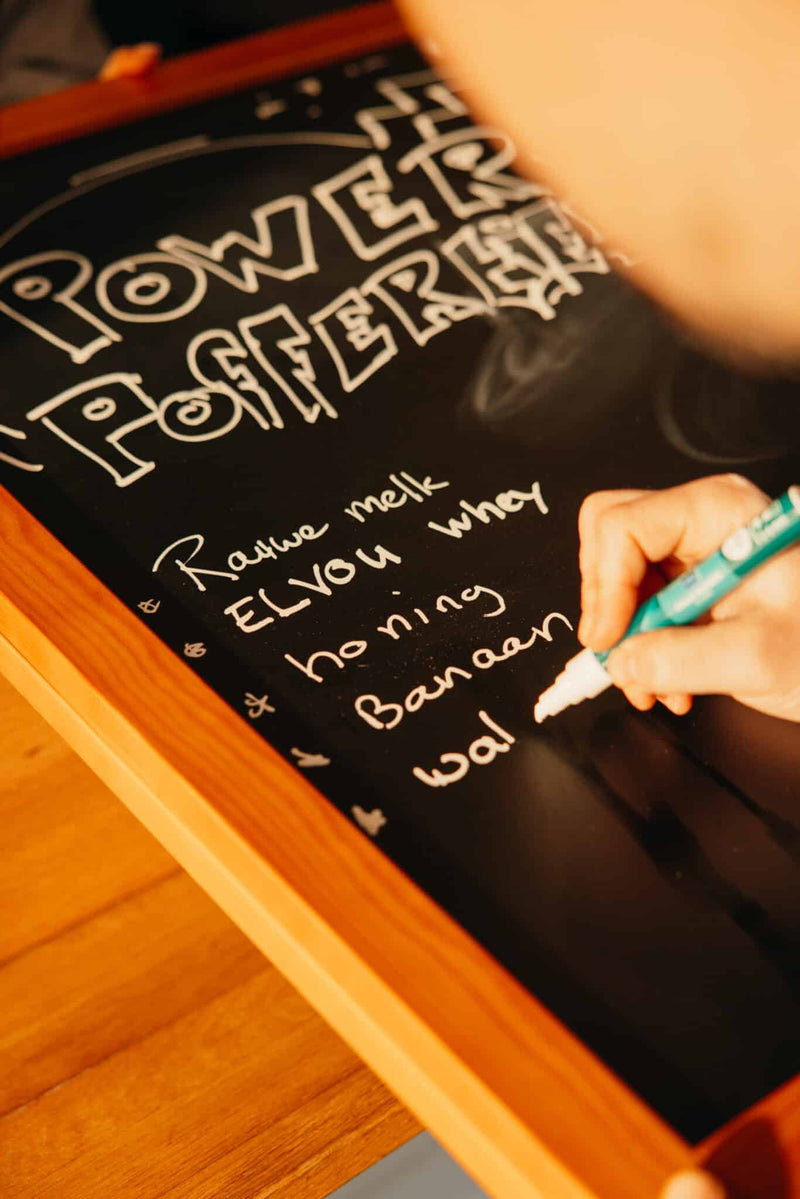 POWER
POFFERTJES
Rauwe melk
ELVOU whey
honing
Banaan
wal